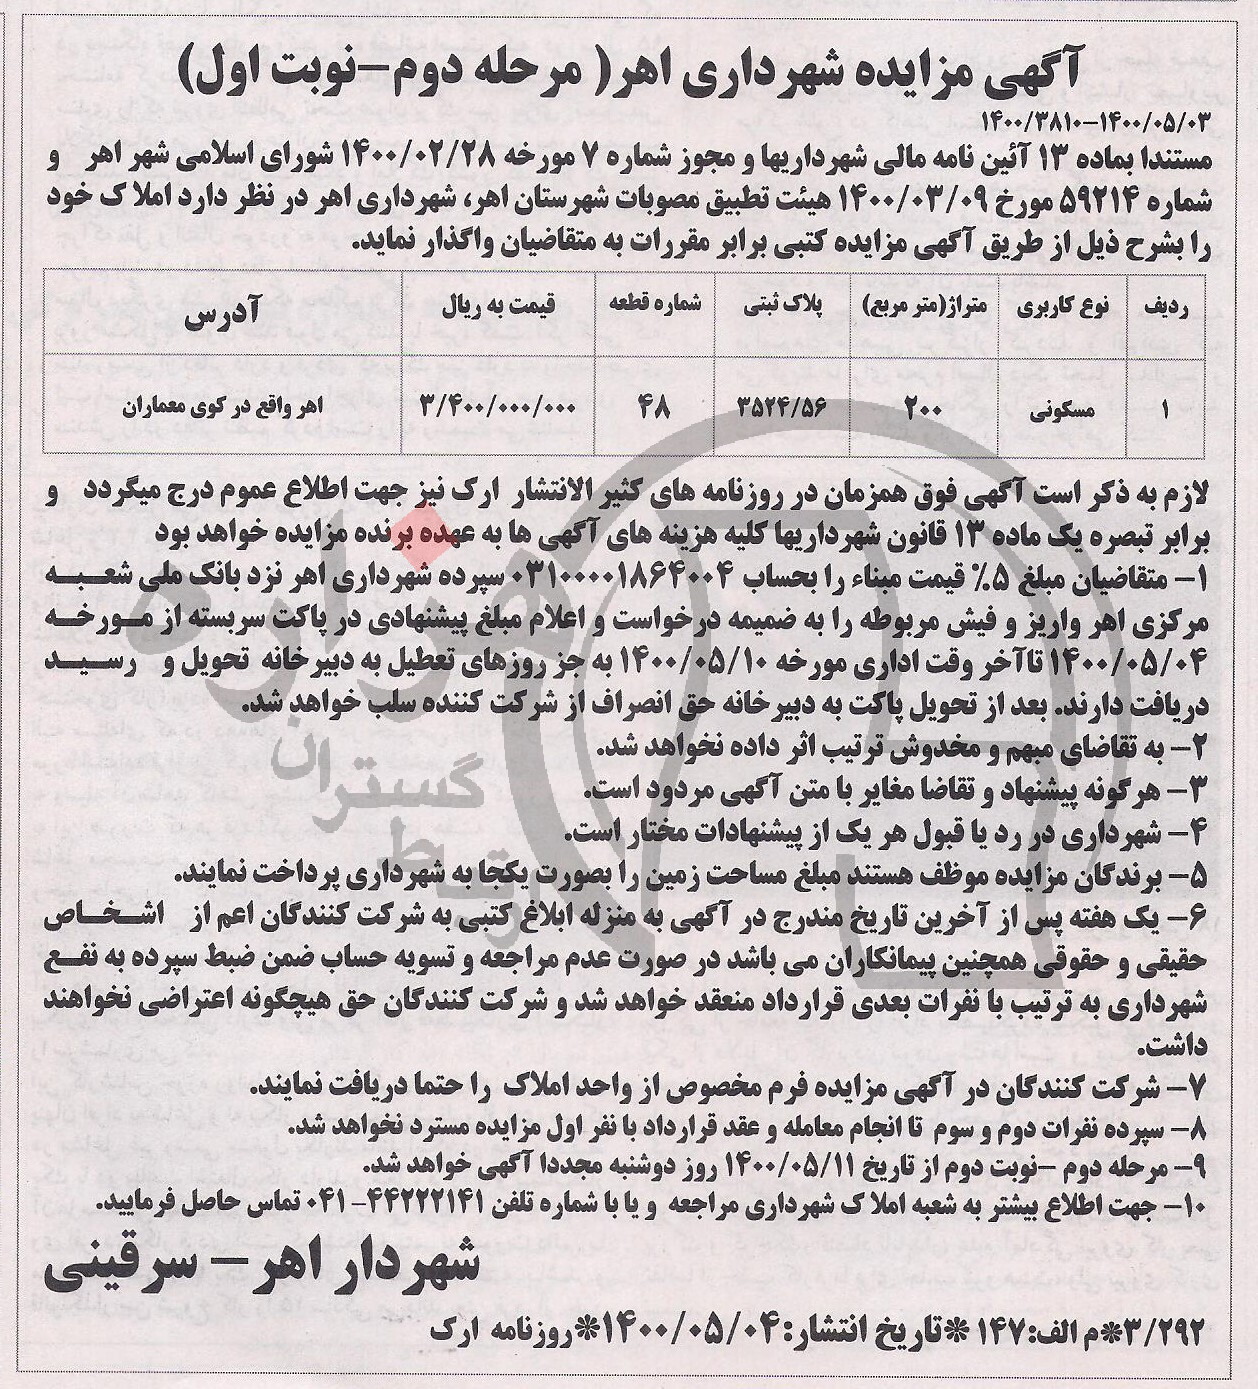 آگهی مزایده شهرداری اهر( مرحله دوم–نوبت اول)
۱۴۰۰/۳۸۱۰–۱۴۰۰/۰۵/۰۳
مستندا بماده ۱۳ آئین نامه مالی شهرداریها و مجوز شماره ۷ مورخه ۱۴۰۰/۰۲/۲۸ شورای اسلامی شهر اهر و
شماره ۵۹۲۱۴ مورخ ۱۴۰۰/۰۳/۰۹ هیئت تطبیق مصوبات شهرستان اهر، شهرداری اهر در نظر دارد املاک خود
را بشرح ذیل از طریق آگهی مزایده کتبی برابر مقررات به متقاضیان واگذار نماید.
ردیف نوع کاربری متراژ(متر مربع) پلاک ثبتی شماره قطعه قیمت به ریال آدرس
۱ مسکونی ۲۰۰ ۳۵۲۴/۵۶ ۴۸ ۳/۴۰۰/۰۰۰/۰۰۰ اهر واقع در کوی معماران
لازم به ذکر است آگهی فوق همزمان در روزنامه های کثیر الانتشار ارک نیز جهت اطلاع عموم درج میگردد و
برابر تبصره یک ماده ۱۳ قانون شهرداریها کلیه هزینه های آگهی ها به عهده برنده مزایده خواهد بود
۱– متقاضیان مبلغ ۵% قیمت مبناء را بحساب ۰۳۱۰۰۰۰۱۸۶۴۰۰۴ سپرده شهرداری اهر نزد بانک ملی شعبه
مرکزی اهر واریز و فیش مربوطه را به ضمیمه درخواست و اعلام مبلغ پیشنهادی در پاکت سربسته از مورخه
۱۴۰۰/۰۵/۰۴ تاآخر وقت اداری مورخه ۱۴۰۰/۰۵/۱۰ به جز روزهای تعطیل به دبیرخانه تحویل و رسید
دریافت دارند. بعد از تحویل پاکت به دبیرخانه حق انصراف از شرکت کننده سلب خواهد شد.
۲– به تقاضای مبهم و مخدوش ترتیب اثر داده نخواهد شد.
۳– هرگونه پیشنهاد و تقاضا مغایر با متن آگهی مردود است.
۴– شهرداری در رد یا قبول هر یک از پیشنهادات مختار است.
۵– برندگان مزایده موظف هستند مبلغ مساحت زمین را بصورت یکجا به شهرداری پرداخت نمایند.
۶– یک هفته پس از آخرین تاریخ مندرج در آگهی به منزله ابلاغ کتبی به شرکت کنندگان اعم از اشخاص
حقیقی و حقوقی همچنین پیمانکاران می باشد در صورت عدم مراجعه و تسویه حساب ضمن ضبط سپرده به نفع
شهرداری به ترتیب با نفرات بعدی قرارداد منعقد خواهد شد و شرکت کنندگان حق هیچگونه اعتراضی نخواهند
داشت.
۷– شرکت کنندگان در آگهی مزایده فرم مخصوص از واحد املاک را حتما دریافت نمایند.
۸– سپرده نفرات دوم و سوم تا انجام معامله و عقد قرارداد با نفر اول مزایده مسترد نخواهد شد.
۹– مرحله دوم –نوبت دوم از تاریخ ۱۴۰۰/۰۵/۱۱ روز دوشنبه مجددا آگهی خواهد شد.
۱۰– جهت اطلاع بیشتر به شعبه املاک شهرداری مراجعه و یا با شماره تلفن ۴۴۲۲۲۱۴۱–۰۴۱ تماس حاصل فرمایید.
شهردار اهر – سرقینی
۳/۲۹۲*م الف:۱۴۷ *تاریخ انتشار:۱۴۰۰/۰۵/۰۴*روزنامه ارک
هزاره
گستران